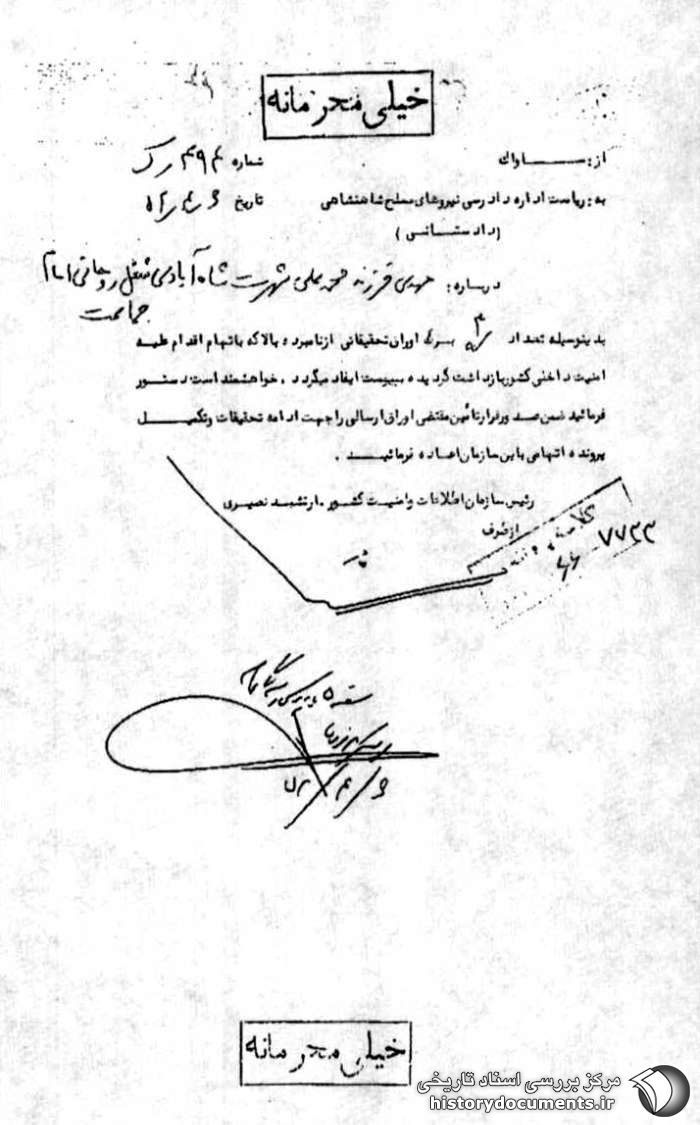 خیلی محرمانه
از: ســـــــاواك
شماره ۴۹۴
به: ریاست اداره دادرسی نیروهای مسلح شاهنشاهی
تاریخ
(دادستــانــی)
درباره: مهدی فرزند محمدعلی شهرت شاه‌آبادی شغل روحانی امام
جماعت
بدینوسیله تعداد برگ اوراق تحقیقاتی از نامبرده بالا که باتهام اقدام علیه
امنیت داخلی کشور بازداشت گردیده بپیوست ایفاد میگردد. خواهشمند است دستور
فرمائید ضمن صدور قرار تأمین مقتضی اوراق ارسالی را جهت ادامه تحقیقات و تکمیل
پرونده اتهامی باین سازمان اعاده فرمائید.
رئیس سازمان اطلاعات و امنیت کشور. ارتشبد نصیری
از طرف
۷۷۲۳
خیلی محرمانه
مرکز بررسی اسناد تاریخی
historydocuments.ir